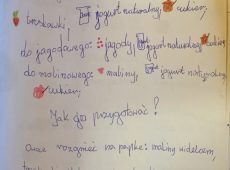 truskawki, jogurt naturalny, cukier,
do jagodowego: jagody, jogurt naturalny cukier,
do malinowego: maliny, jogurt naturalny,
cukier.
Jak go przygotować?
rozgnieć na papkę: maliny widelcem,